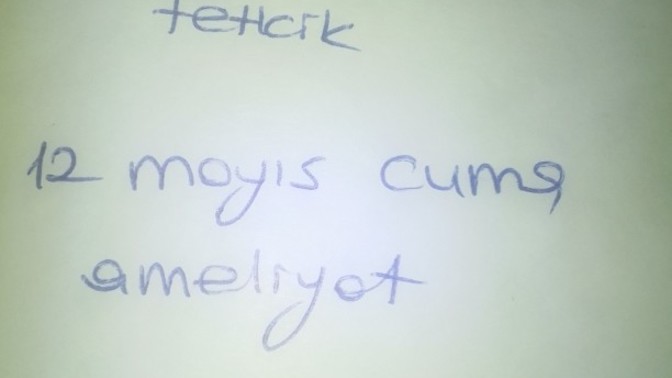 tetkik
12 mayıs cuma
ameliyat